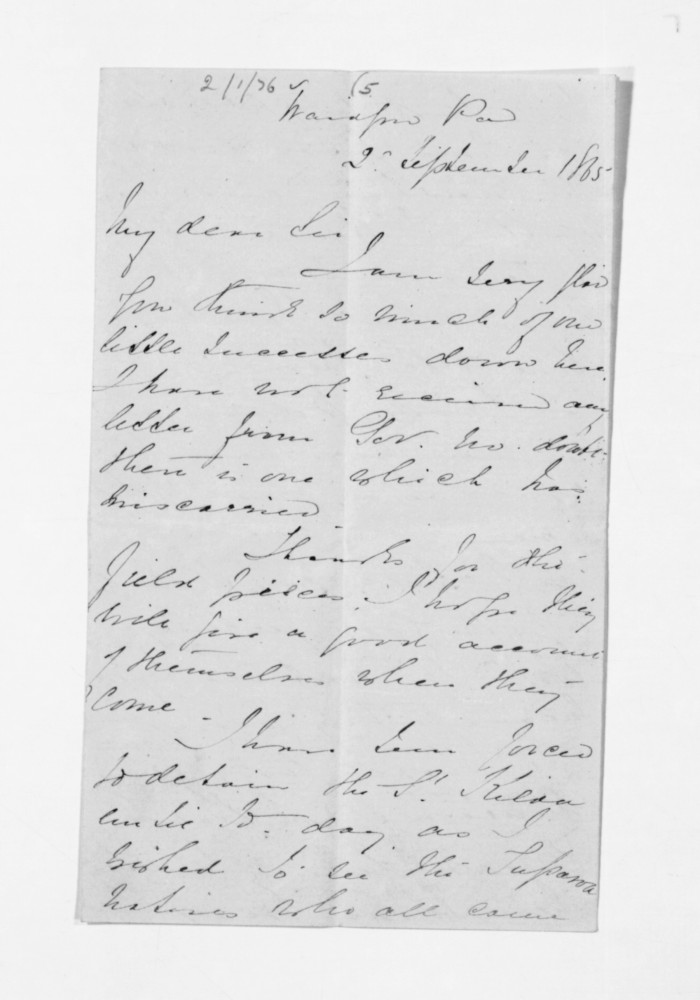 2/1/76 (5
Pa
2d September 1865
My dear Sir
I am very glad
you think so much of our
little successes down here.
I have not received any
letter from Gov. no doubt
there is one which has
miscarried
Thanks for the
field pieces. I hope they
will give a good account
of themselves when they
come
I have been forced
to detain the St. Kilda
until to day as I
wished to see the Tuparoa
Natives who all came